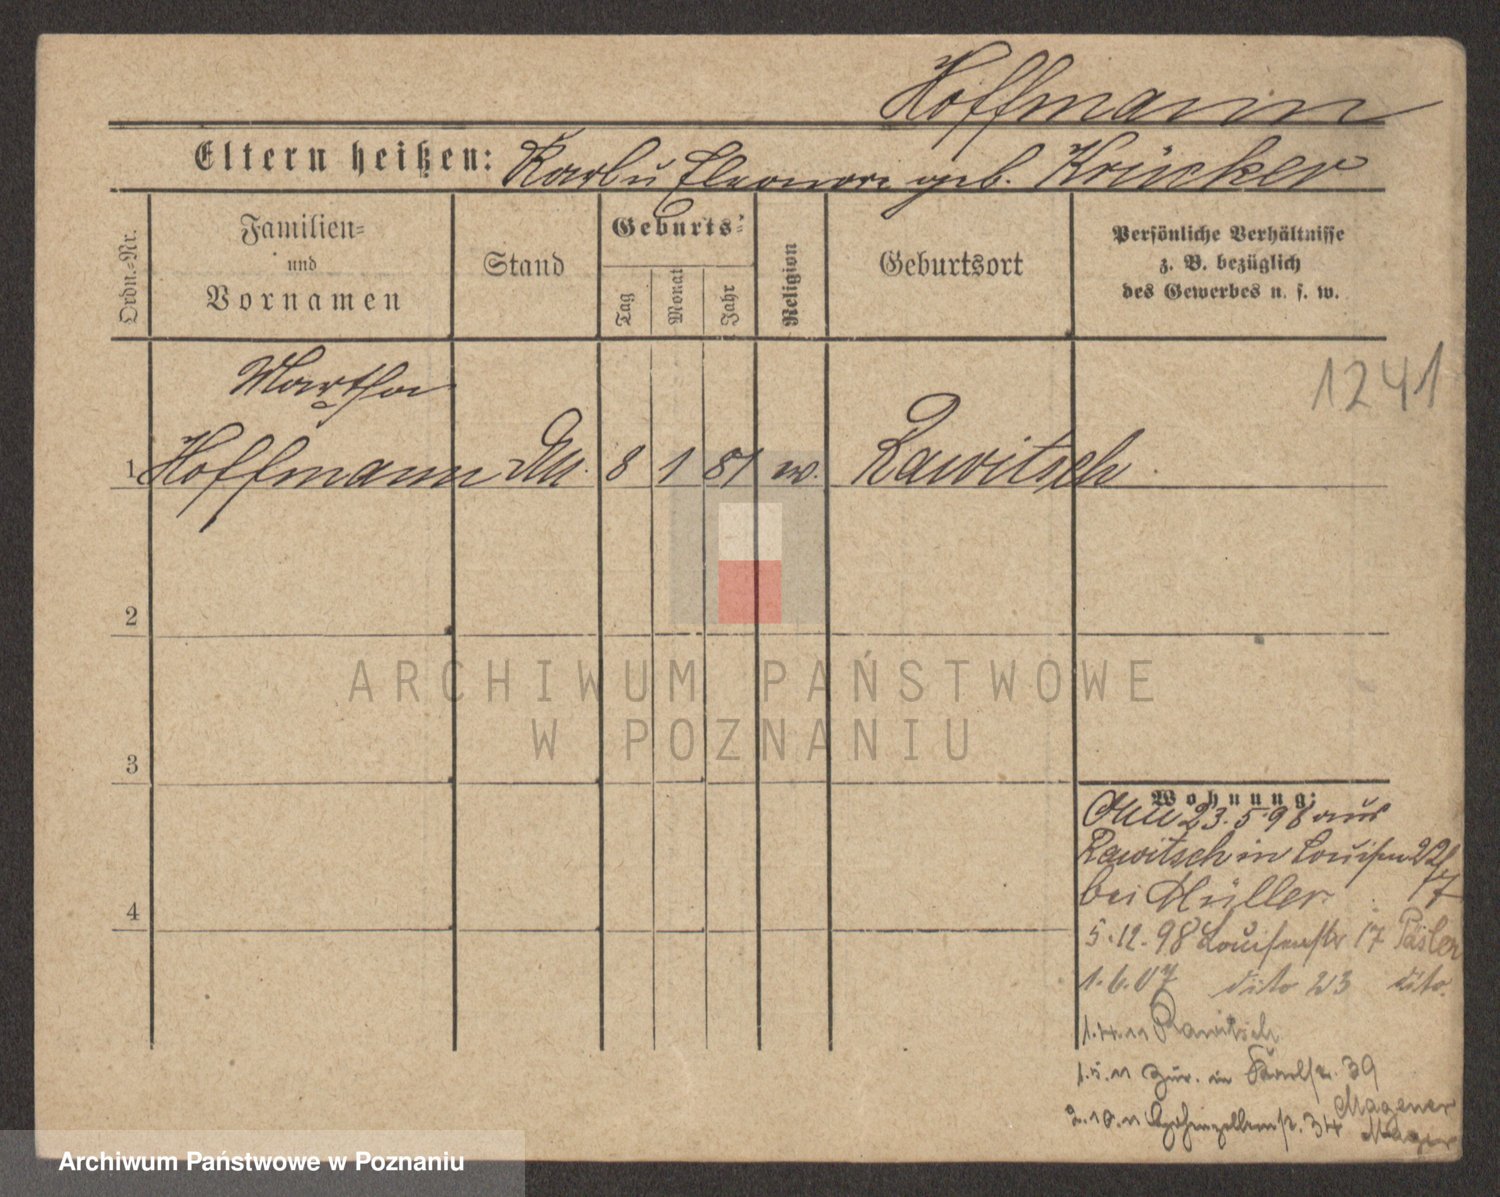 Hoffmann
Eltern heißen: Karl u Eleonore geb. Krücker
Ordn.-Nr.
Familien-
und
Vornamen
Stand
Geburts-
Tag
Monat
Jahr
Religion
Geburtsort
Persönliche Verhältnisse
z. B. bezüglich
des Gewerbes u. s. w.
1241
Martha
1 Hoffmann 8 1 81 Rawitsch
2
3
4
ARCHIWUM PAŃSTWOWE
W POZNANIU
Wohnung:
23.5.98 aus
Rawitsch in Louisen 22/
bei Müller 17
5.12.98 Louisenstr 17 Päsler
1.6.07 dito 23 dito.
1.4.11 Rawitsch
1.5.11 zur. in Karlstr. 39
Magener
2.10.11 34
Archiwum Państwowe w Poznaniu